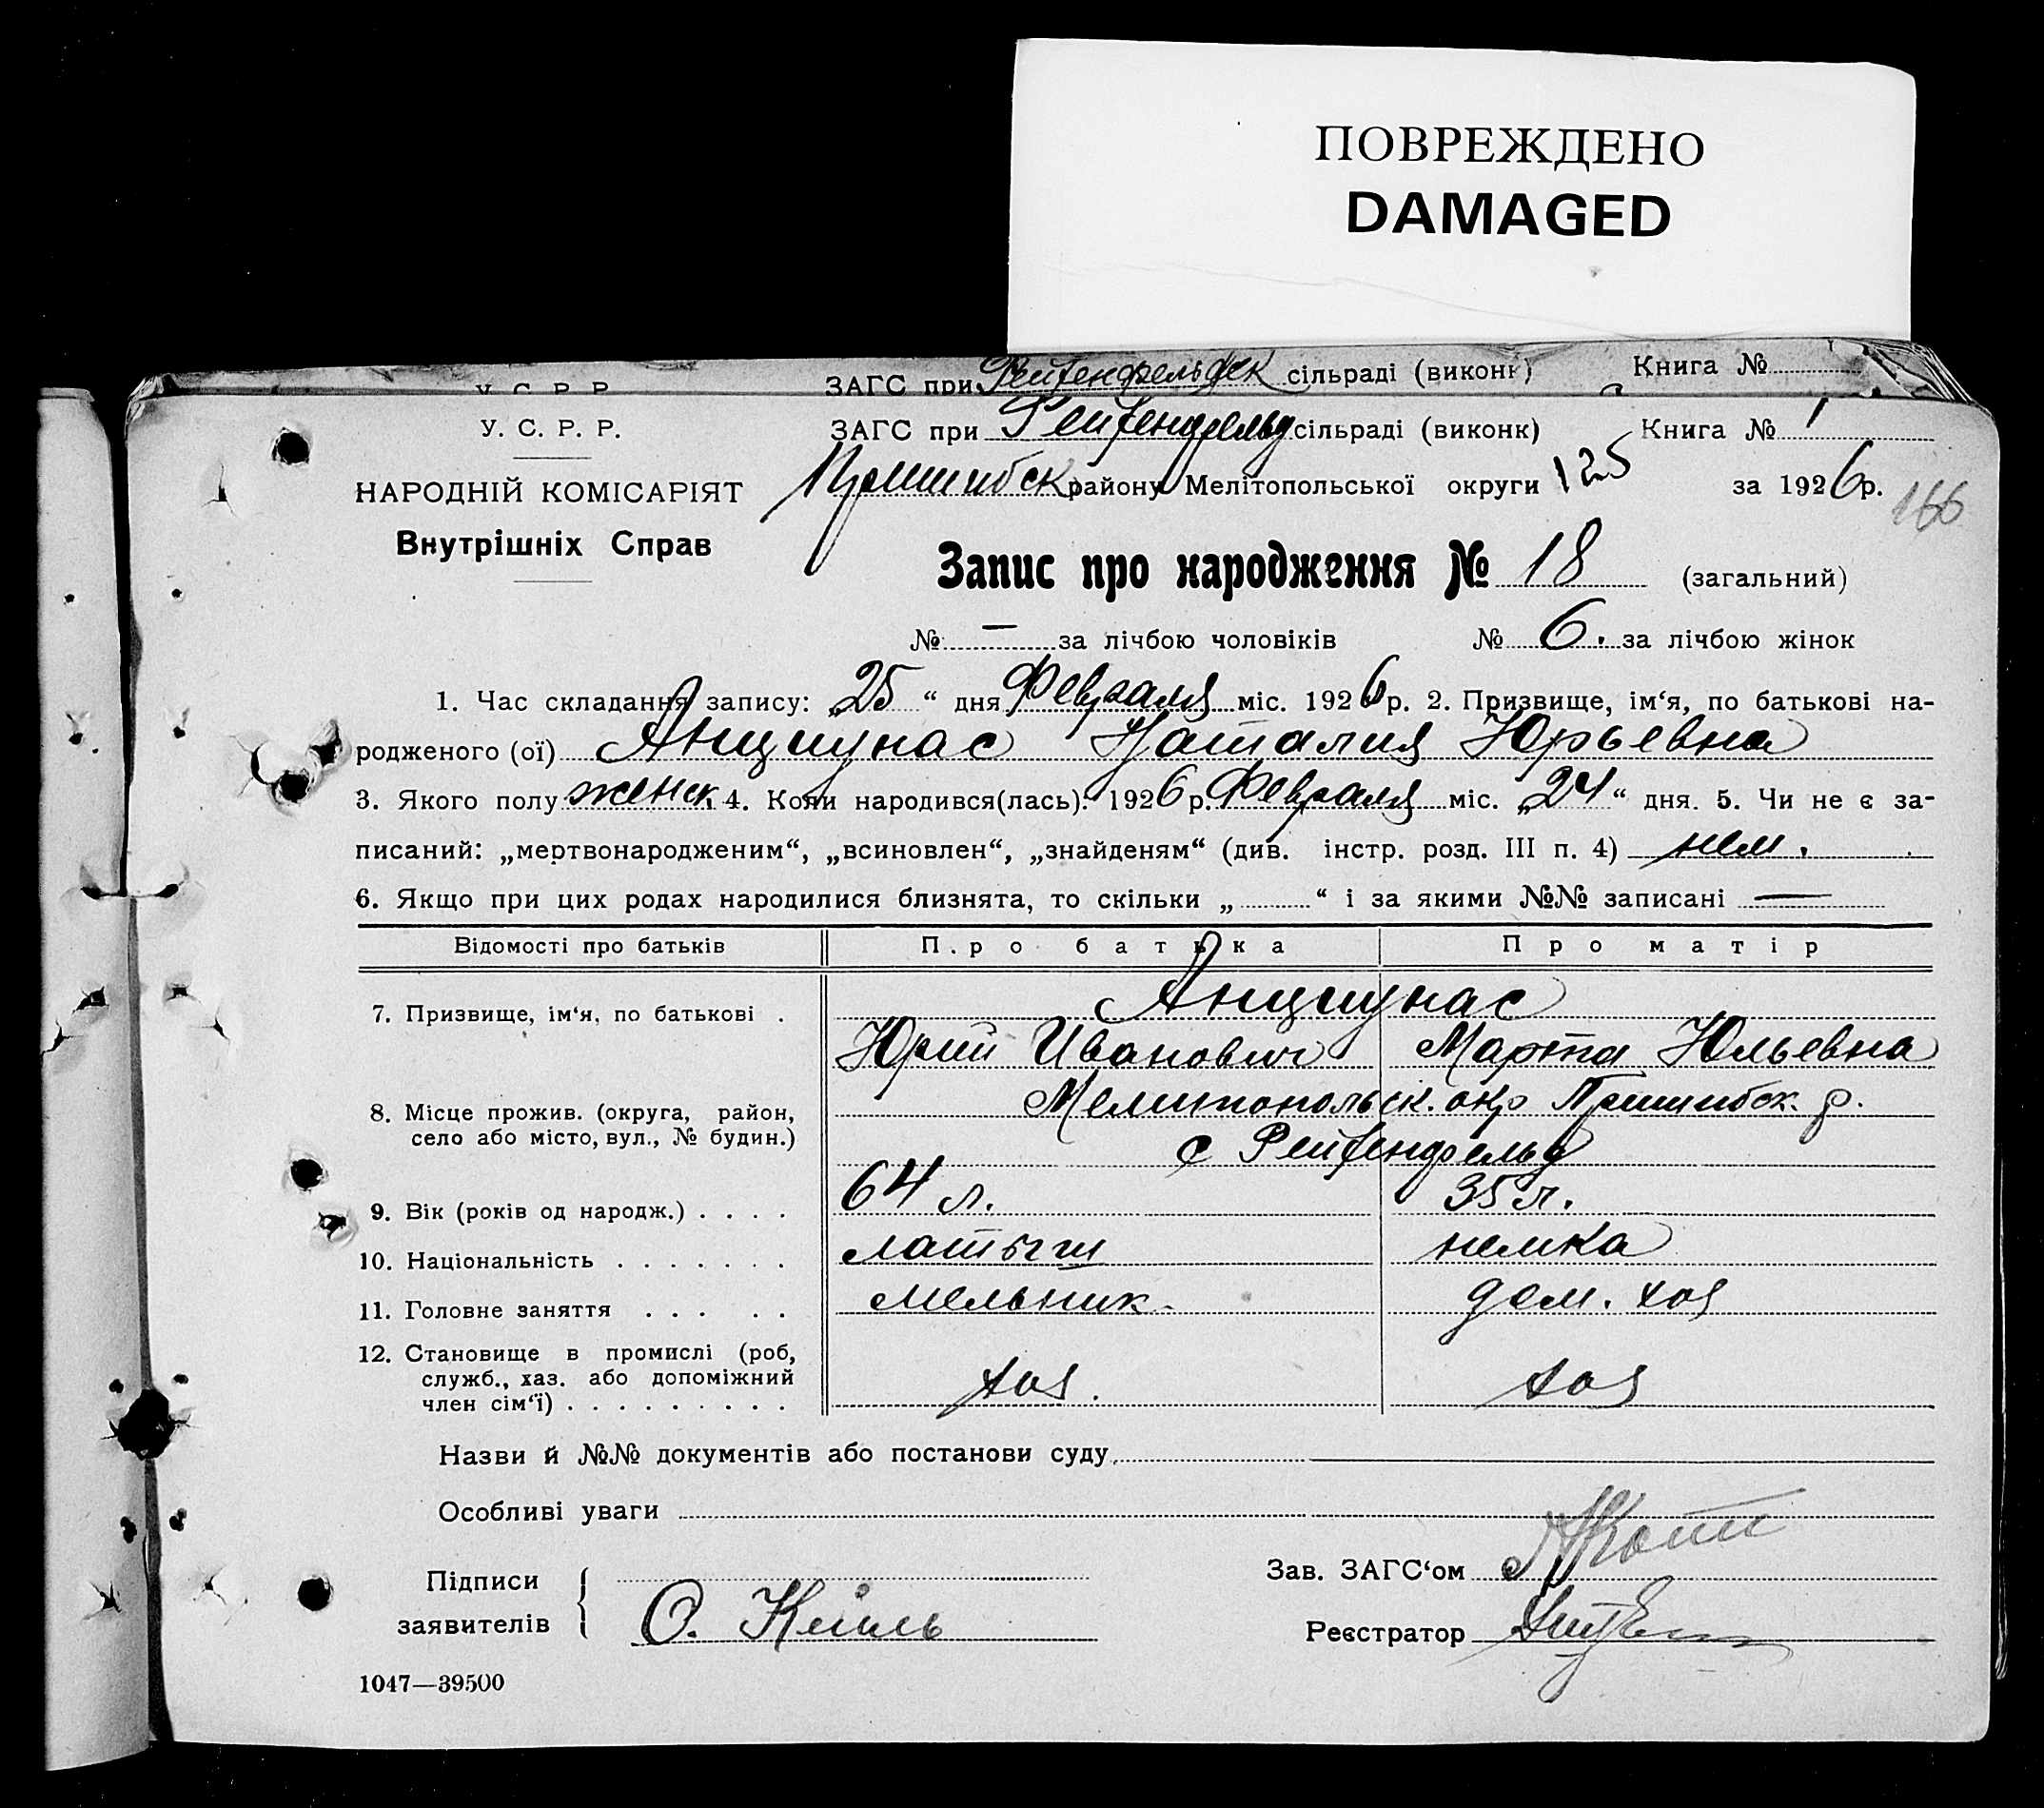 ПОВРЕЖДЕНО
DAMAGED
У. С. Р. Р. ЗАГС при Рейхенфельдск сільраді (виконк) Книга №
У. С. Р. Р. ЗАГС при Рейхенфельд сільраді (виконк) Книга № 1
Пришибск району Мелітопольської округи 125 за 1926 р. 166
НАРОДНІЙ КОМІСАРІЯТ
Внутрішніх Справ
Запис про народження № 18 (загальний)
№ — за лічбою чоловіків № 6. за лічбою жінок
1. Час складання запису: „25“ дня Февраля міс. 1926 р. 2. Призвище, ім‘я, по батькові на-
родженого (ої) Анцшунас Наталия Юрьевна
3. Якого полу женск. 4. Коли народився(лась): 1926 р. Февраля міс. „24“ дня. 5. Чи не є за-
писаний: „мертвонародженим“, „всиновлен“, „знайденям“ (див. інстр. розд. III п. 4) нет.
6. Якщо при цих родах народилися близнята, то скільки „ “ і за якими №№ записані —
Відомості про батьків Про батька Про матір
7. Призвище, ім‘я, по батькові . Анцшунас
Юрий Иванович Марта Юльевна
8. Місце прожив. (округа, район, Мелитопольск. окр Пришибск. р.
село або місто, вул., № будин.) с Рейхенфельд
9. Вік (років од народж.) . . . . 64 л. 35 л.
10. Національність . . . . . . . латыш немка
11. Головне заняття . . . . . мельник. дом. хоз
12. Становище в промислі (роб,
служб., хаз. або допоміжний хоз. хоз
член сім‘ї) . . . . . . . . .
Назви й №№ документів або постанови суду
Особливі уваги
Підписи Зав. ЗАГС‘ом
заявителів О. Кейль Реєстратор
1047—39500